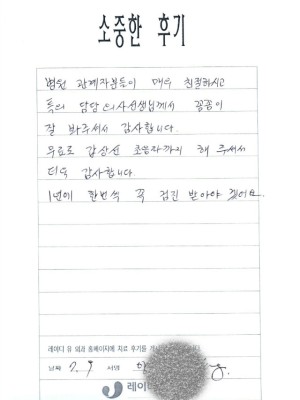 소중한 후기
병원 관계자분들이 매우 친절하시고
특히 담당의사선생님께서 꼼꼼히
잘 봐주셔서 감사합니다.
무료로 갑상선 초음파까지 해 주셔서
더욱 감사합니다.
1년에 한번씩 꼭 검진 받아야 겠어요.
레이디 유 외과 홈페이지에 치료 후기를
날짜 7. 9 서명
레이디